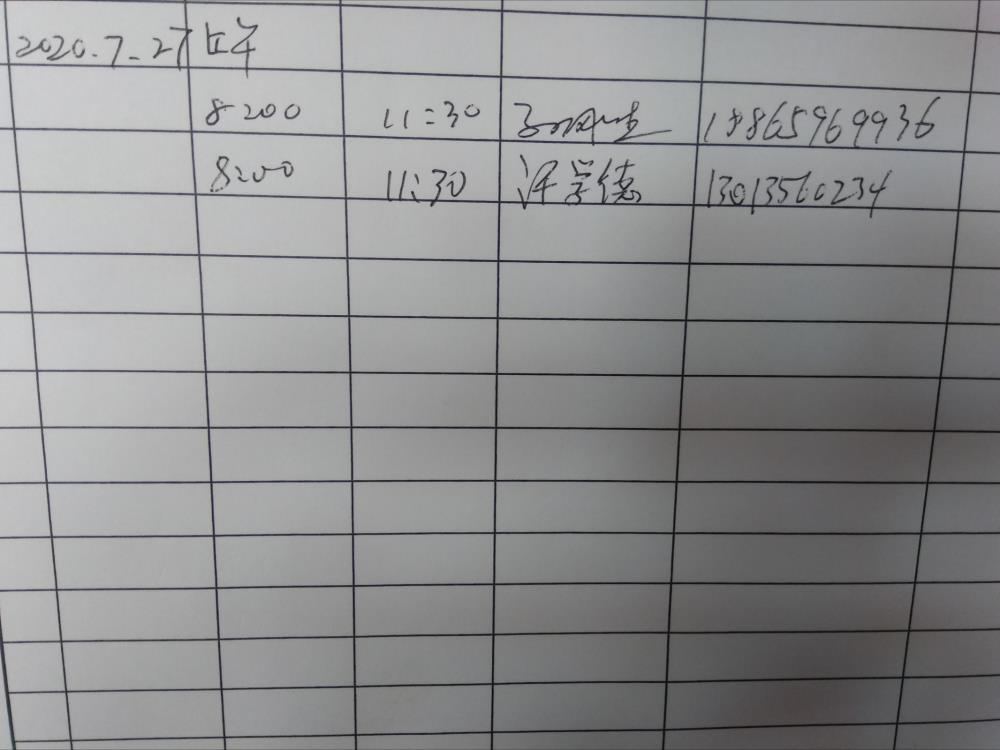 2020.7-27 上午
8:00 11:30 18865969936
8:00 11:30 许学德 13013560234